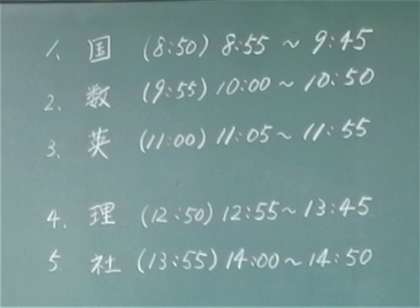 1. 国 (8:50) 8:55 ~ 9:45
2. 数 (9:55) 10:00 ~ 10:50
3. 英 (11:00) 11:05 ~ 11:55
4. 理 (12:50) 12:55 ~ 13:45
5. 社 (13:55) 14:00 ~ 14:50